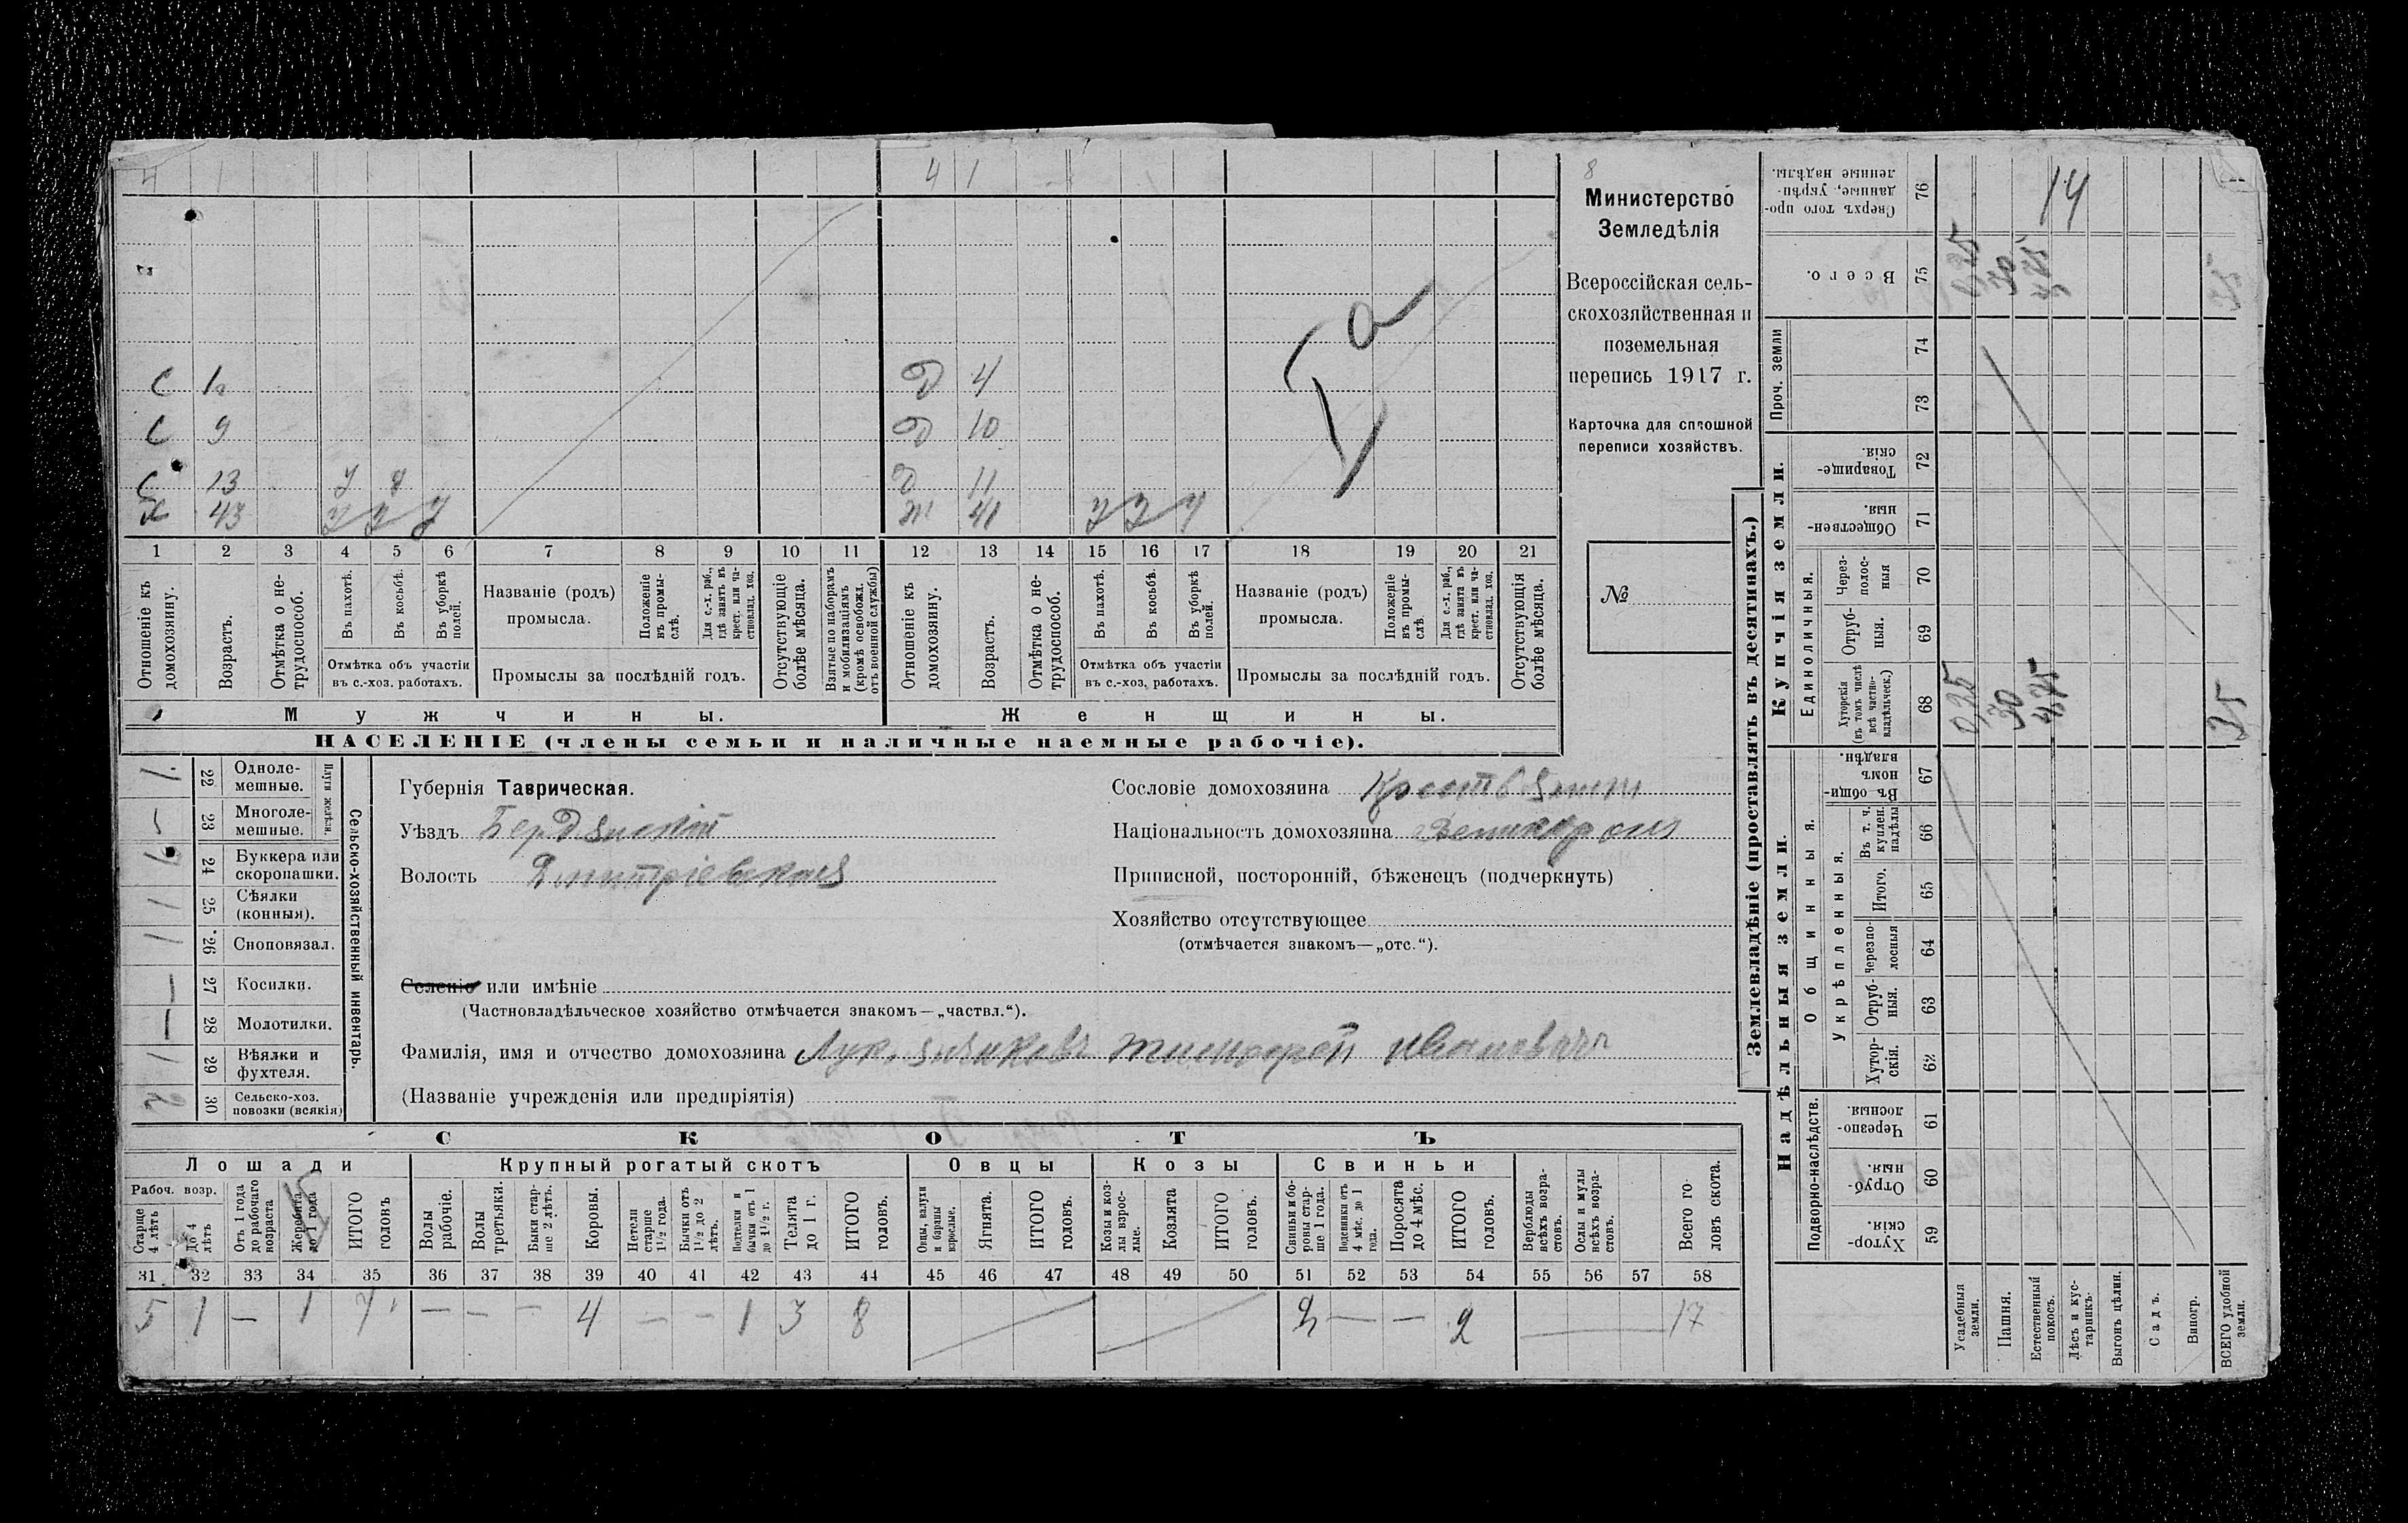 4 1 4 1
С 1 Д 4
С 9 Д 10
С 13 У У Д 11
Х 43 У У У Ж 41 У У У
1 2 3 4 5 6 7 8 9 10 11 12 13 14 15 16 17 18 19 20 21
Отношеніе къ домохозяину.
Возрастъ.
Отмѣтка о нетрудоспособ.
Въ пахотѣ.
Въ косьбѣ.
Въ уборкѣ полей.
Отмѣтка объ участіи
въ с.-хоз. работахъ.
Названіе (родъ)
промысла.
Положеніе въ промыслѣ.
Для с.-х. раб., гдѣ занятъ въ крест. или частновлад. хоз.
Промыслы за послѣдній годъ.
Отсутствующіе болѣе мѣсяца.
Взятые по наборамъ и мобилизаціямъ (кромѣ освобожд. отъ военной службы)
Отношеніе къ домохозяину.
Возрастъ.
Отмѣтка о нетрудоспособ.
Въ пахотѣ.
Въ косьбѣ.
Въ уборкѣ полей.
Отмѣтка объ участіи
въ с.-хоз. работахъ.
Названіе (родъ)
промысла.
Положеніе въ промыслѣ
Для с.-х. раб., гдѣ занята въ крест. или частновлад. хоз.
Промыслы за послѣдній годъ.
Отсутствующія болѣе мѣсяца.
Мужчины. Женщины.
НАСЕЛЕНІЕ (члены семьи и наличные наемные рабочіе).
8
Министерство
Земледѣлія
Всероссійская сель-
скохозяйственная и
поземельная
перепись 1917 г.
Карточка для сплошной
переписи хозяйствъ.
№
Сельско-хозяйственный инвентарь.
Плуги желѣзн.
1 22 Однолемешные.
– 23 Многолемешные.
24 Буккера или скоропашки.
1 25 Сѣялки (конныя).
1 26 Сноповязал.
– 27 Косилки.
– 28 Молотилки.
1 29 Вѣялки и фухтеля.
2 30 Сельско-хоз. повозки (всякія)
Губернія Таврическая.
Уѣздъ Бердянскій
Волость Дмитріевская
Сословіе домохозяина
Національность домохозяина Великорос
Приписной, посторонній, бѣженецъ (подчеркнуть)
Хозяйство отсутствующее
(отмѣчается знакомъ—„отс.“).
Селеніе или имѣніе
(Частновладѣльческое хозяйство отмѣчается знакомъ—„частвл.“).
Фамилія, имя и отчество домохозяина Тимофей Ивановичъ
(Названіе учрежденія или предпріятія)
СКОТЪ
Лошади Крупный рогатый скотъ Овцы Козы Свиньи
Рабоч. возр.
Старше 4 лѣтъ
До 4 лѣтъ
Отъ 1 года до рабочаго возраста
Жеребята до 1 года
ИТОГО головъ
Волы рабочіе.
Волы третьяки.
Быки старше 2 лѣтъ.
Коровы.
Нетели старше 1½ года.
Бычки отъ 1½ до 2 лѣтъ.
Подтелки и бычки отъ 1 до 1½ г.
Телята до 1 г.
ИТОГО головъ.
Овцы, валухи и бараны взрослые.
Ягнята.
ИТОГО головъ.
Козы и козлы взрослые.
Козлята
ИТОГО головъ.
Свиньи и боровы старше 1 года.
Подсвинки отъ 4 мѣс. до 1 года.
Поросята до 4 мѣс.
ИТОГО головъ.
Верблюды всѣхъ возрастовъ.
Ослы и мулы всѣхъ возрастовъ.
Всего головъ скота.
31 32 33 34 35 36 37 38 39 40 41 42 43 44 45 46 47 48 49 50 51 52 53 54 55 56 57 58
5 1 — 1 7 — — — 4 — — 1 3 8 2 — — 2 17
Землевладѣніе (проставлять въ десятинахъ.)
Купчія земли.
Надѣльныя земли.
Сверхъ того проданные, укрѣпленные надѣлы. 76 14
Всего. 75 0,25 30 4,75 35
Проч. земли
74
73
Товарищескія. 72
Общественныя. 71
Единоличныя.
Черезполосныя 70
Отрубныя. 69
Хуторскія (въ томъ числѣ всѣ частновладѣльческ.) 68 0,25 30 4,75 35
Общинныя.
Въ общинномъ владѣн. 67
Укрѣпленныя.
Въ т. ч. куплен. надѣлы 66
Итого. 65
Черезполосныя 64
Отрубныя. 63
Хуторскія. 62
Подворно-наслѣдств.
Черезполосныя 61
Отрубныя. 60
Хуторскія. 59
Усадебныя земли.
Пашня.
Естественный покосъ.
Лѣсъ и кустарникъ.
Выгонъ цѣлин.
Садъ.
Виногр.
ВСЕГО удобной земли.